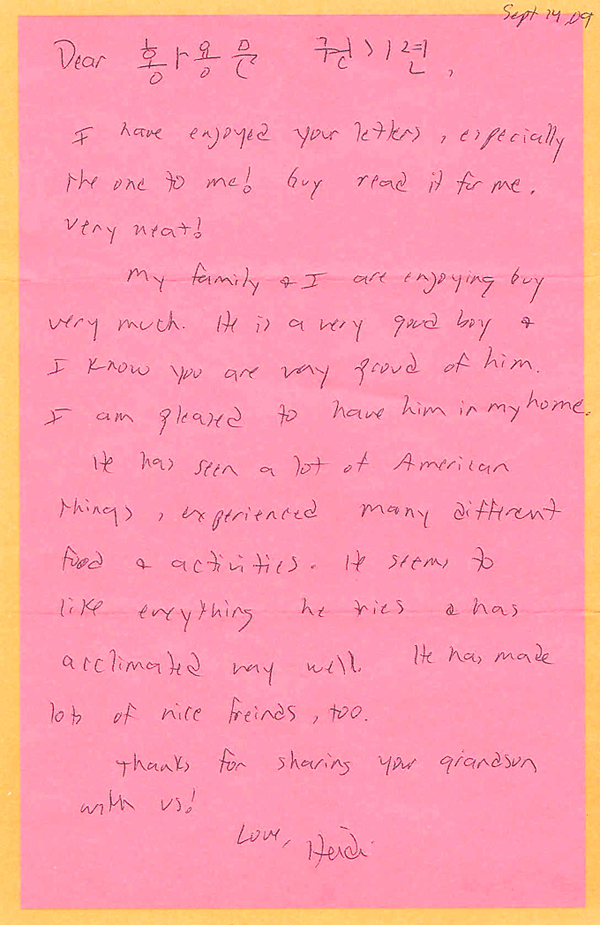 Sept 14, 09
Dear 홍사용은 권시연,
I have enjoyed your letters, especially
the one to me! Guy read it for me.
very neat!
My family & I are enjoying Guy
very much. He is a very good boy &
I know you are very proud of him.
I am pleased to have him in my home.
He has seen a lot of American
things, experienced many different
food & activities. He seems to
like everything he tries & has
acclimated very well. He has made
lots of nice freinds, too.
Thanks for sharing your grandson
with us!
Love, Heidi